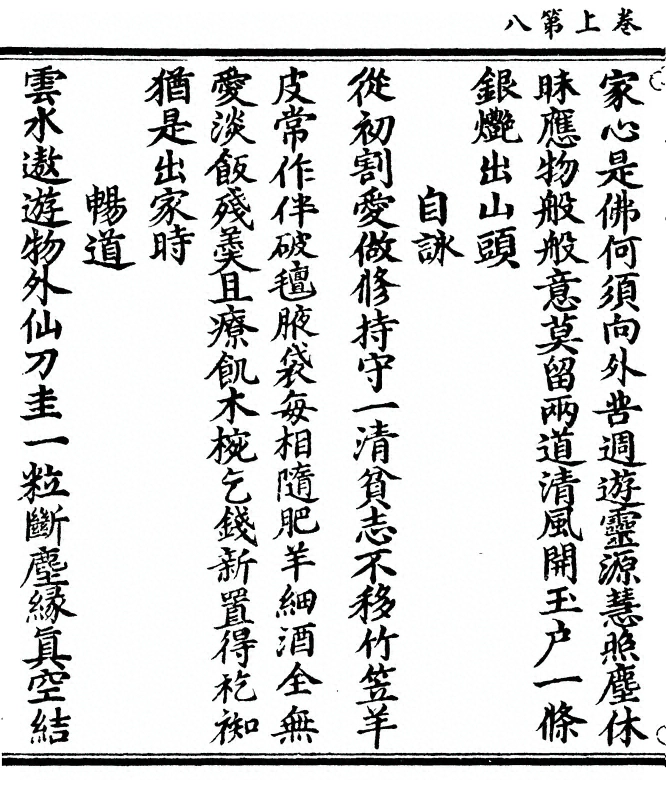 卷上第八
家心是佛何須向外甞週遊靈源慧照塵休
昧應物般般意莫留兩道清風開玉户一條
銀艷出山頭
自詠
從初割愛做修持守一清貧志不移竹笠羊
皮常作伴破氊腋袋每相隨肥羊細酒全無
愛淡飯殘羹且療飢木椀乞錢新置得
猶是出家時
暢道
雲水遨遊物外仙刀圭一粒斷塵緣真空結